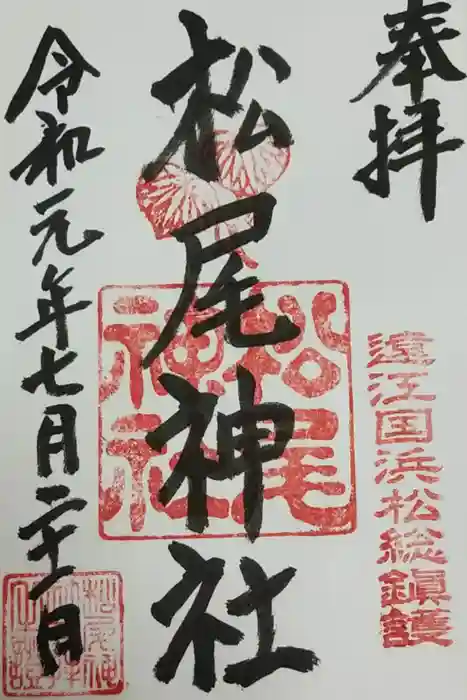 奉拝
遠江国浜松総鎮護
松尾神社
松尾神社
令和元年七月二十一日